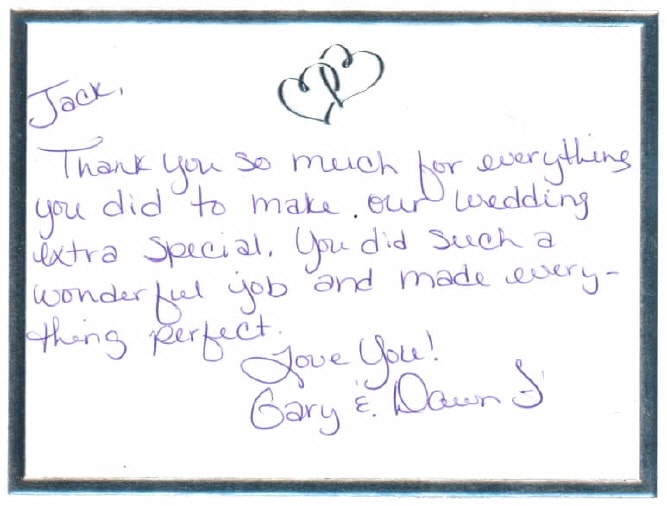 Jack,
Thank you so much for everything
you did to make our wedding
extra special. You did such a
wonderful job and made every-
thing perfect.
Love You!
Gary & Dawn J